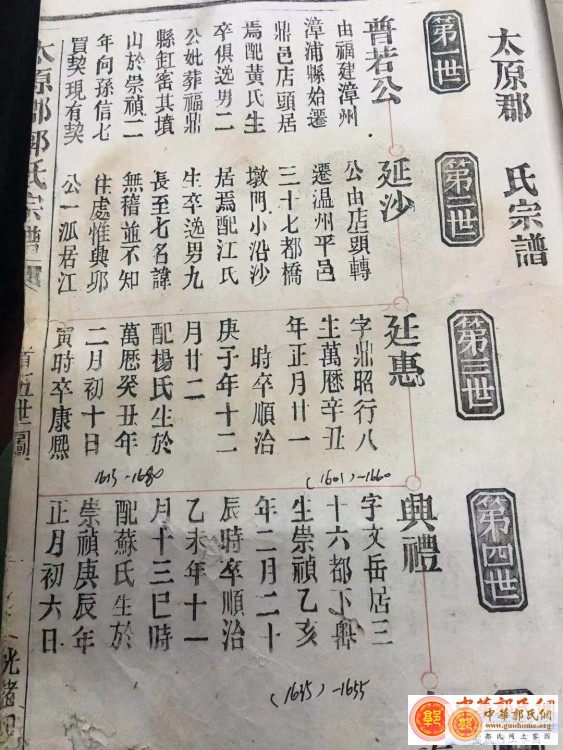 太原郡 氏宗譜
第一世
普若公
由福建漳州
漳浦縣始遷
鼎邑店頭居
焉配黃氏生
卒俱逸男二
公妣葬福鼎
縣缸窰其墳
山於崇禎二
年向孫信七
買契現有契
第二世
延沙
公由店頭轉
遷温州平邑
三十七都橋
墩門小沿沙
居焉配江氏
生卒逸男九
長至七名諱
無稽並不知
住處惟興邜
公一派居江
第三世
廷惠
字鼎昭行八
生萬歷辛丑
年正月廿一
時卒順治
庚子年十二
月廿二
配楊氏生於
萬歷癸丑年
二月初十日
寅時卒康熙
(1601)-1660
1613-1680
第四世
興禮
字文岳居三
十六都下
生崇禎乙亥
年二月二十
辰時卒順治
乙未年十一
月十三巳時
配蘇氏生於
崇禎庚辰年
正月初六日
(1635)-1655
太原郡郭氏宗譜
首五世圖
光緒
中華郭氏網
www.guohome.org
郭氏网上家园